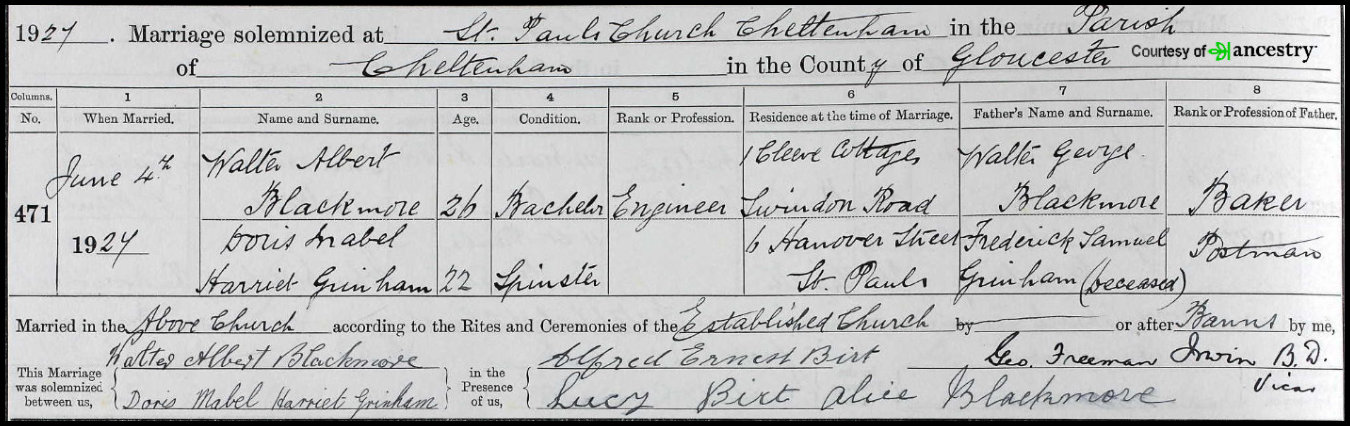 1927. Marriage solemnized at St. Pauls Church Cheltenham in the Parish
of Cheltenham in the County of Gloucester Courtesy of ancestry
Columns. 1 2 3 4 5 6 7 8
No. When Married. Name and Surname. Age. Condition. Rank or Profession. Residence at the time of Marriage. Father's Name and Surname. Rank or Profession of Father.
Walter Albert 1 Cleeve Cottages Walter George
June 4th Blackmore 26 Bachelor Engineer Swindon Road Blackmore Baker
471
1927 Doris Mabel 6 Hanover Street Frederick Samuel Postman
Harriet Grinham 22 Spinster St. Pauls Grinham (deceased)
Married in the Above Church according to the Rites and Ceremonies of the Established Church by or after Banns by me,
Walter Albert Blackmore Alfred Ernest Birt Geo. Freeman Irwin B.D.
This Marriage was solemnized between us, in the Presence of us, Vicar
Doris Mabel Harriet Grinham Lucy Birt Alice Blackmore